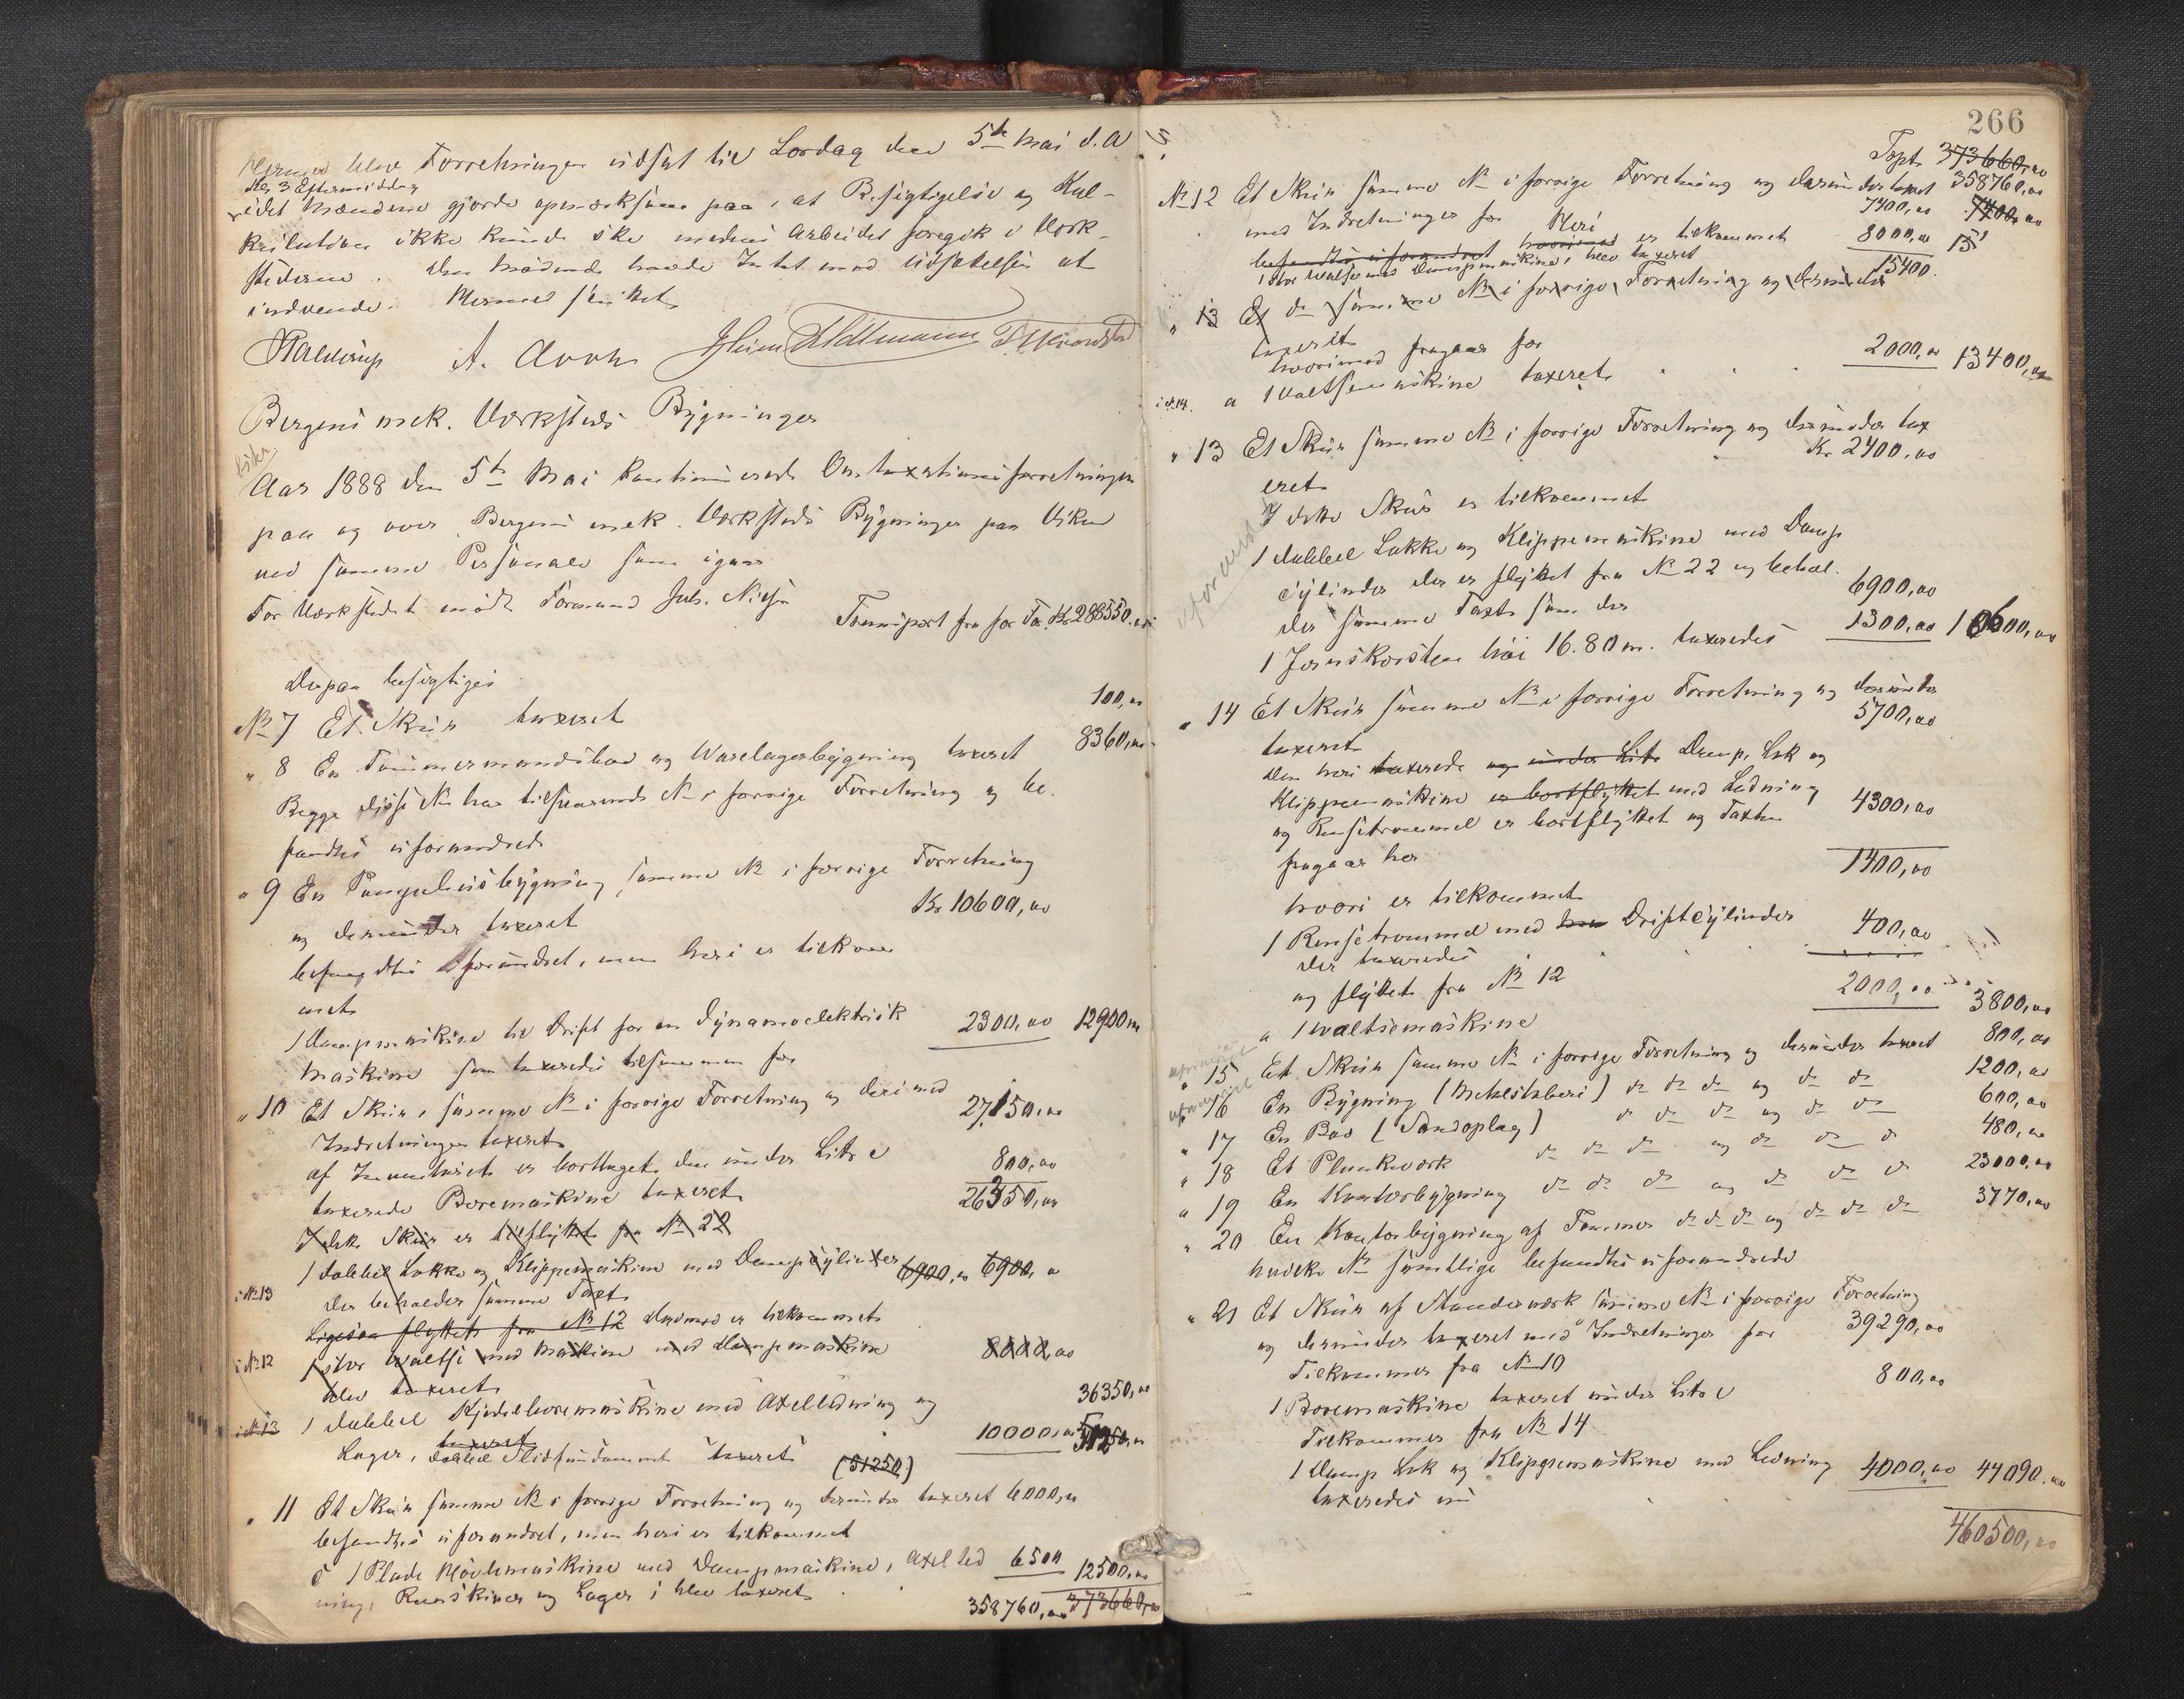 Hermed blev Forretningen udsat til Lørdag den 5te Mai d.A
Kl. 3 Eftermiddag
idet Mændene gjorde opmærksom paa, at Besigtigelse og Kal-
kulation ikke kunde ske medens Arbeidet foregik i Værk-
stederne. Den mødende havde Intet mod Udsættelsen at
indvende. Hermed sluttet
A.
Bergens mek. Værksteds Bygninger
Aar 1888 den 5te Mai kontinuerede Omtaxationsforretningen
paa og over Bergens mek. Værksteds Bygninger paa Viken
ved samme Personale som igaar
For Værkstedet mødte Formand Joh.
Transport fra for Kr 288550.
Derpaa besigtiges
No 7 Et Skur taxeret 100,00
" 8 En Tømmermandsbod og Varelagerbygning taxeret 8360,00
Begge disse No har tilsvarende No i forrige Forretning og be-
fandtes uforandrede
" 9 En Pumpehusbygning samme No i forrige Forretning
og derunder taxeret Kr 10600,00
befandtes uforandret, men heri er tilkom
met
1 Dampmaskine til Drift for en dynamoelektrisk
Maskine som taxeredes tilsammen for 2300,00 12900,00
" 10 Et Skur, samme No i forrige Forretning og deri med
Indretninger taxeret 27150,00
af Inventariet er borttaget den under Litr c
taxerede Boremaskine taxeret 800,00
26350,00
I dette Skur er tilflyttet fra No 22
i No 13 1 dobbel Lokke og Klippemaskine med Dampcylinder 6900,00 6900,00
der beholder samme Taxt
Ligesaa flyttet fra No 12 Desmed er tilkommet
i No 12 1 stor Valse med Maskine med Dampmaskine 8000,00
blev taxeret
i No 13 1 dobbel Kjedelboremaskine med Axelledning og 36350,00
Lager, dobbel Slidfundament taxeret 10000,00
(51250)
" 11 Et Skur samme No i forrige Forretning og derunder taxeret 6000,00
befandtes uforandret, men heri er tilkommet
c 1 Plade Høvlemaskine med Dampmaskine, Axelled 6500 12500,00
ning, Remskiver og Lager, blev taxeret
358760,00 373660,00
266
Tspt 373660,00
358760,00
No 12 Et Skur samme No i forrige Forretning og derunder taxeret
med Indretninger for 7400,00 7400,00
Heri
befandtes uforandret hvorimod er tilkommet 8000,00
1 stor Valse med Dampmaskine, blev taxeret
15400.
" 13 Et do samme No i forrige Forretning og derunder
taxeret
hvorimod fragaar for
i No 14. a 1 Valtsemaskine taxeret 2000,00 13400,00
" 13 Et Skur samme No i forrige Forretning og derunder tax
eret Kr 2400,00
I dette Skur er tilkommet
1 dobbel Lokke og Klippemaskine med Damp
cylinder der er flyttet fra No 22 og behol-
der samme Taxt som der 6900,00
1 Jernskorsten høi 16.80 m. taxeredes 1300,00 10600,00
" 14 Et Skur samme No i forrige Forretning og derunder
taxeret 5700,00
Den heri taxerede og under Litr Damp, Lok og
Klippemaskine er bortflyttet med Ledning
og Rensetrommel er bortflyttet og Taxten
fragaar her 4300,00
1400,00
hvori er tilkommet
1 Rensetrommel med Driftcylinder
der taxeredes 400,00
og flyttet fra No 12
a 1 Valtsemaskine 2000,00 3800,00
" 15 Et Skur samme No i forrige Forretning og derunder taxeret 800,00
" 16 En Bygning (Metalstøberi) do do do og do do 1200,00
" 17 En Bod (Sandoplag) do do do og do do 600,00
" 18 Et Plankværk do do do og do do do 480,00
" 19 En Kontorbygning do do do og do do do 23000,00
" 20 En Kontorbygning af Tømmer do do do og do do do 3770,00
hvilke No samtlige befandtes uforandrede
" 21 Et Skur af Standerværk samme No i forrige Forretning
og derunder taxeret med Indretninger for 39290,00
Tilkommer fra No 10
1 Boremaskine taxeret under Litr c 800,00
Tilkommer fra No 14
1 Damp Lok og Klippemaskine med Ledning
taxeredes nu 4000,00 44090,00
460500,00